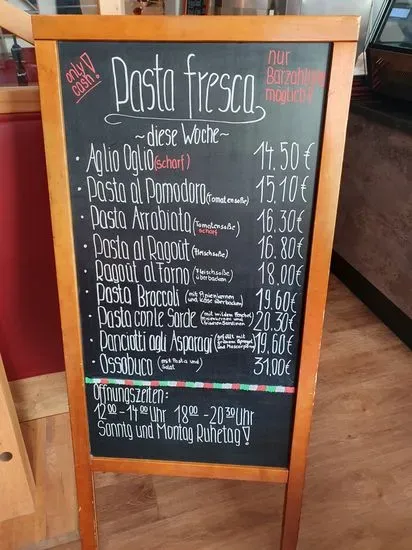 only cash!
nur Barzahlung möglich!
Pasta fresca
~diese Woche~
• Aglio Oglio (scharf) 14.50€
• Pasta al Pomodoro (Tomatensoße) 15.10€
• Pasta Arrabiata (Tomatensoße scharf) 16.30€
• Pasta al Ragout (Fleischsoße) 16.80€
• Ragout al Forno (Fleischsoße überbacken) 18.00€
• Pasta Broccoli (mit Pinienkernen und Käse überbacken) 19.60€
• Pasta con le Sarde (mit wildem Fenchel, Pinienkernen und frischen Sardinen) 20.30€
• Panciotti agli Asparagi (gefüllt mit grünem Spargel und Mascarpone) 19.60€
• Ossobuco (mit Pasta und Salat) 31.00€
Öffnungszeiten:
12 00 - 14 00 Uhr 18 00 - 20 30 Uhr
Sonntg und Montag Ruhetag!